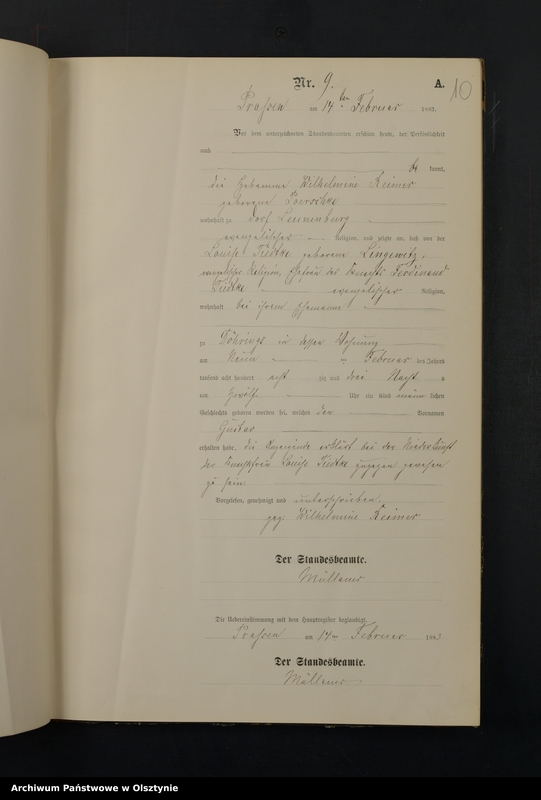 Nr. 9.
A.
10
Prassen am 14ten Februar 1883.
Vor dem unterzeichneten Standesbeamten erschien heute, der Persönlichkeit
nach
be kannt,
die Hebamme Wilhelmine Reimer
geborene
wohnhaft zu Dorf Leunenburg
evangelischer Religion, und zeigte an, daß von der
Louise Tiedtke geborene Lingewitz,
evangelischer Religion, Ehefrau des Knechts Ferdinand
Tiedtke evangelischer Religion,
wohnhaft bei ihrem Ehemanne
zu Döhrings in dessen Wohnung
am Neun ten Februar des Jahres
tausend acht hundert acht zig und drei Nachts
um zwölf Uhr ein Kind männ lichen
Geschlechts geboren worden sei, welches den Vornamen
Gustav
erhalten habe. Die Hebamme erklärt bei der Niederkunft
der Louise Tiedtke zugegen gewesen
zu sein.
Vorgelesen, genehmigt und unterschrieben.
gez. Wilhelmine Reimer
Der Standesbeamte.
Müllauer
Die Uebereinstimmung mit dem Hauptregister beglaubigt.
Prassen am 14ten Februar 1883
Der Standesbeamte.
Müllauer.
Archiwum Państwowe w Olsztynie